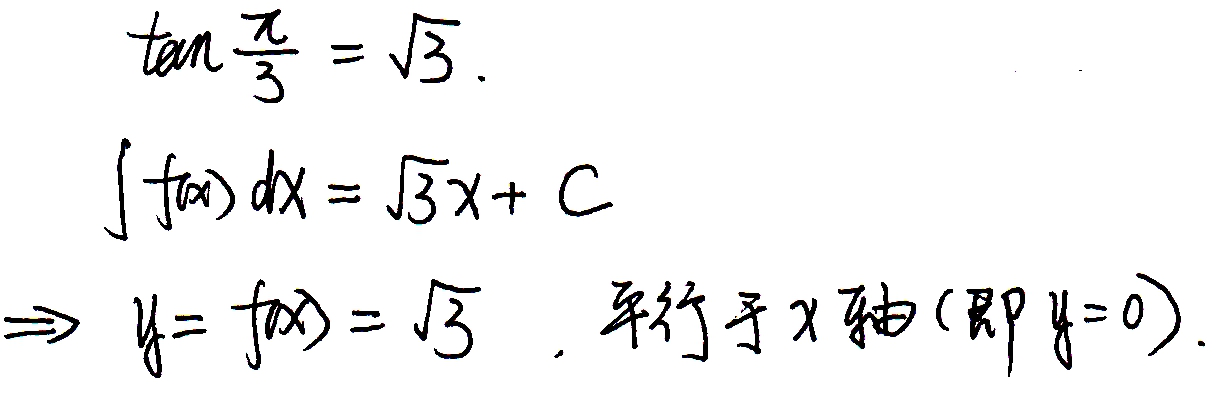 tan π/3 = √3.
∫ f(x) dx = √3x + C
⇒ y = f(x) = √3 . 平行于 x 轴 (即 y=0).